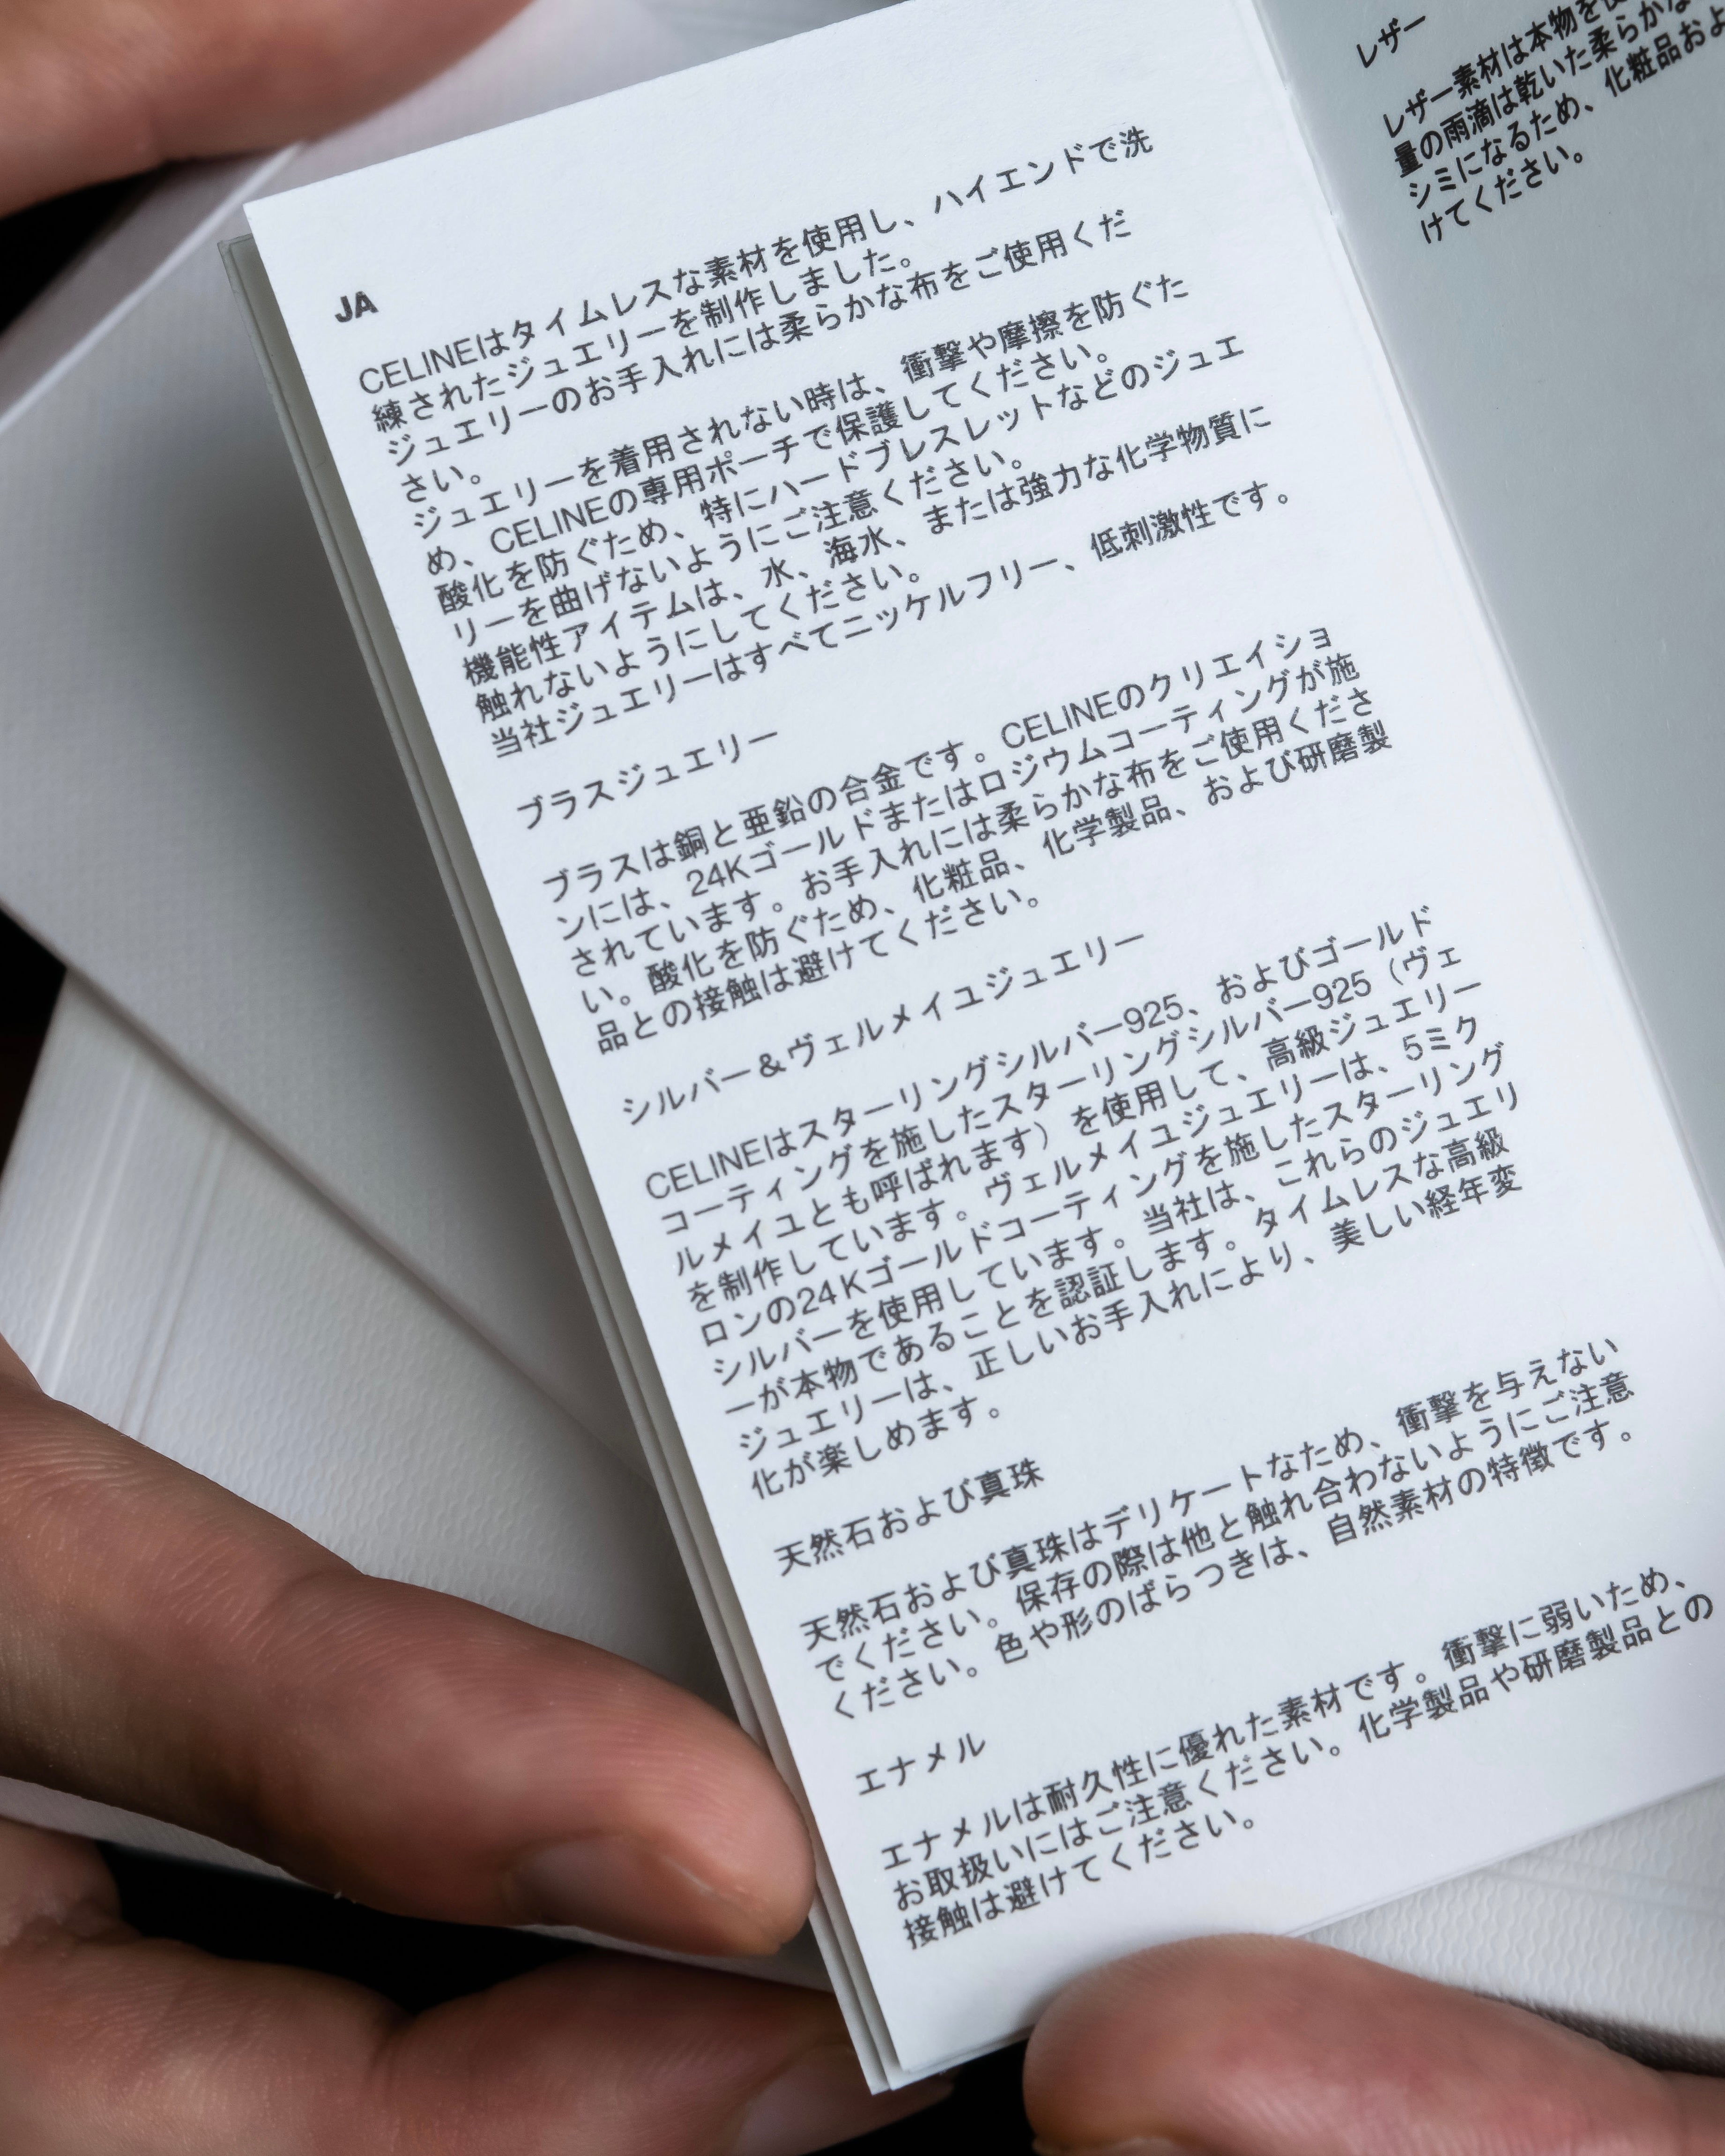 JA
CELINEはタイムレスな素材を使用し、ハイエンドで洗
練されたジュエリーを制作しました。
ジュエリーのお手入れには柔らかな布をご使用くだ
さい。
ジュエリーを着用されない時は、衝撃や摩擦を防ぐた
め、CELINEの専用ポーチで保護してください。
酸化を防ぐため、特にハードブレスレットなどのジュエ
リーを曲げないようにご注意ください。
機能性アイテムは、水、海水、または強力な化学物質に
触れないようにしてください。
当社ジュエリーはすべてニッケルフリー、低刺激性です。
ブラスジュエリー
ブラスは銅と亜鉛の合金です。CELINEのクリエイショ
ンには、24Kゴールドまたはロジウムコーティングが施
されています。お手入れには柔らかな布をご使用くださ
い。酸化を防ぐため、化粧品、化学製品、および研磨製
品との接触は避けてください。
シルバー&ヴェルメイユジュエリー
CELINEはスターリングシルバー925、およびゴールド
コーティングを施したスターリングシルバー925（ヴェ
ルメイユとも呼ばれます）を使用して、高級ジュエリー
を制作しています。ヴェルメイユジュエリーは、5ミク
ロンの24Kゴールドコーティングを施したスターリング
シルバーを使用しています。当社は、これらのジュエリ
ーが本物であることを認証します。タイムレスな高級
ジュエリーは、正しいお手入れにより、美しい経年変
化が楽しめます。
天然石および真珠
天然石および真珠はデリケートなため、衝撃を与えない
でください。保存の際は他と触れ合わないようにご注意
ください。色や形のばらつきは、自然素材の特徴です。
エナメル
エナメルは耐久性に優れた素材です。衝撃に弱いため、
お取扱いにはご注意ください。化学製品や研磨製品との
接触は避けてください。
レザー
レザー素材は本物を
量の雨滴は乾いた柔らかな
シミになるため、化粧品およ
けてください。